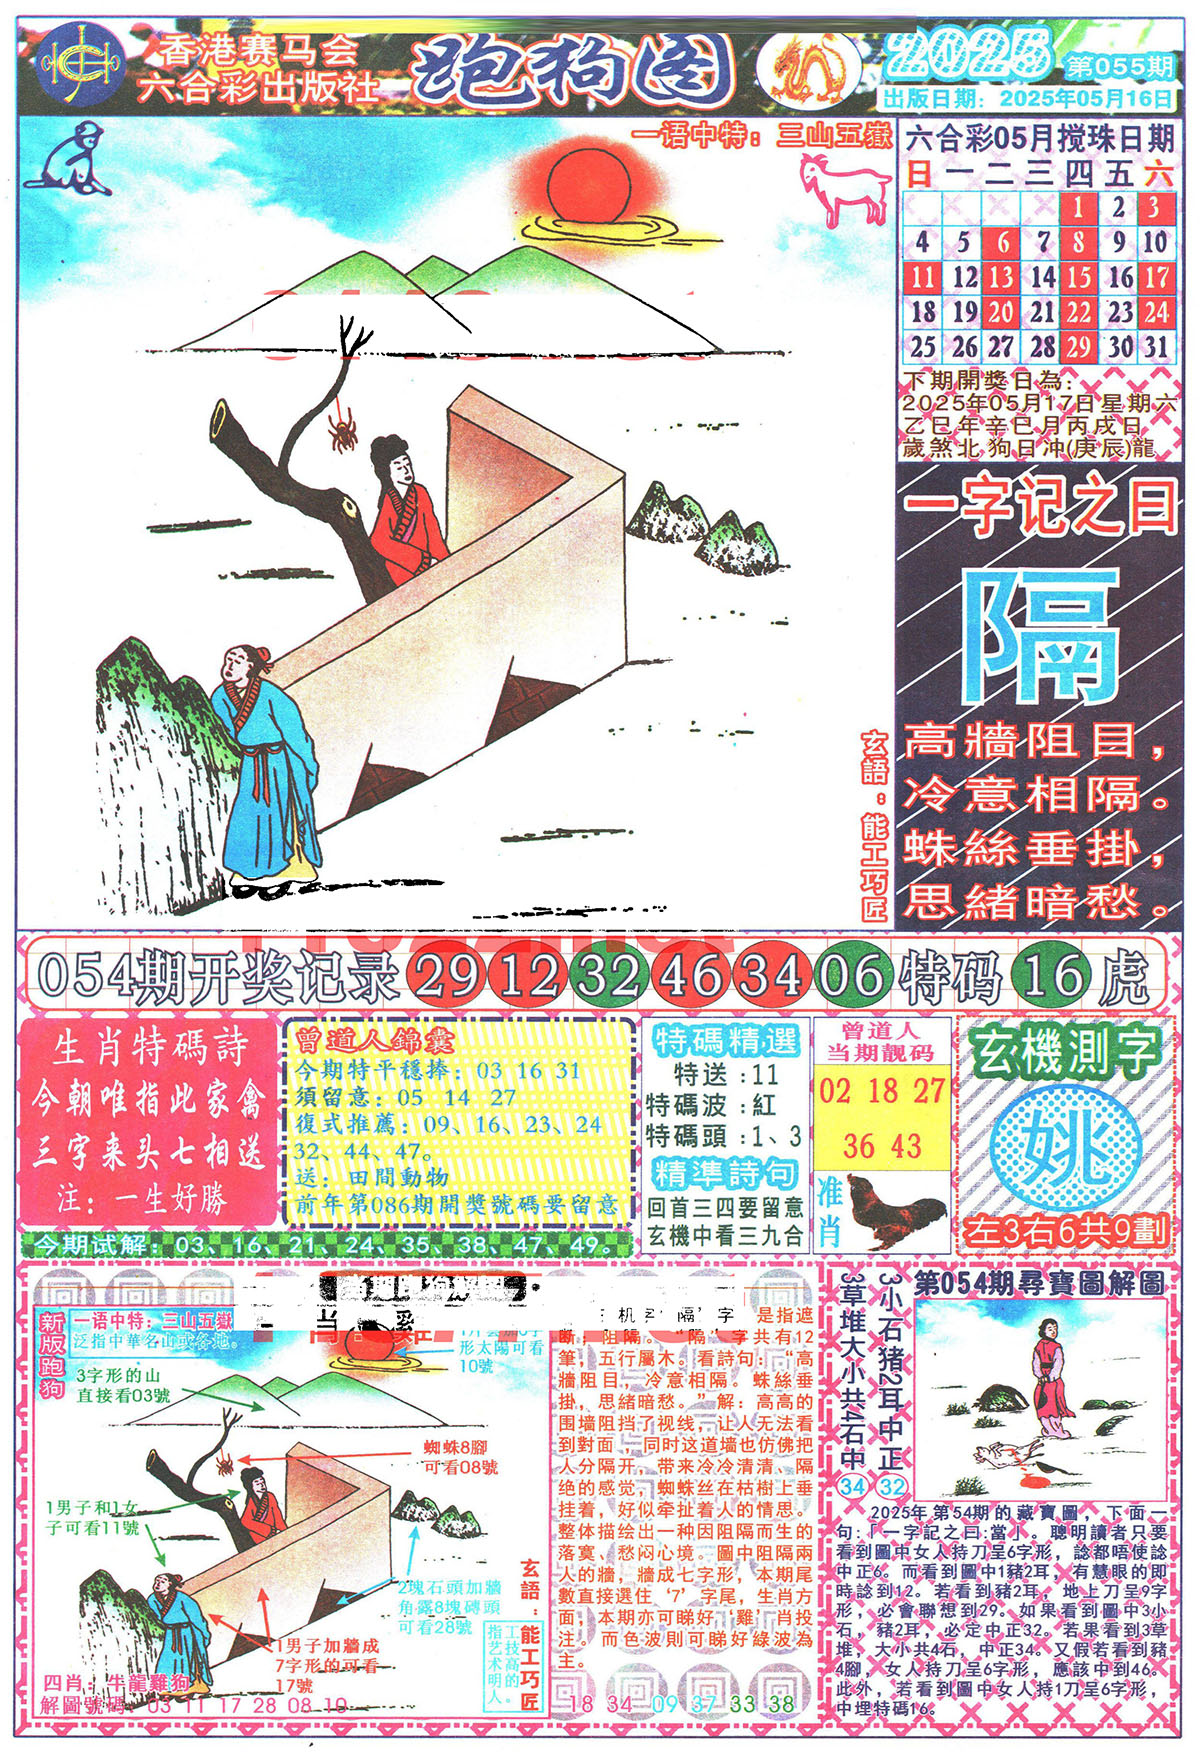 香港赛马会
六合彩出版社
跑狗图
2025 第055期
出版日期：2025年05月16日
一语中特：三山五嶽
六合彩05月搅珠日期
日 一 二 三 四 五 六
1 2 3
4 5 6 7 8 9 10
11 12 13 14 15 16 17
18 19 20 21 22 23 24
25 26 27 28 29 30 31
下期開獎日為：
2025年05月17日星期六
乙巳年辛巳月丙戌日
歲煞北 狗日冲(庚辰)龍
一字记之曰
隔
高牆阻目，
冷意相隔。
蛛絲垂掛，
思緒暗愁。
玄語：能工巧匠
054期开奖记录 29 12 32 46 34 06 特码 16 虎
生肖特碼詩
今朝唯指此家禽
三字来头七相送
注：一生好勝
曾道人錦囊
今期特平穩捧：03 16 31
須留意：05 14 27
復式推薦：09、16、23、24
32、44、47。
送：田間動物
前年第086期開獎號碼要留意
今期试解：03、16、21、24、35、38、47、49。
特碼精選
特送：11
特碼波：紅
特碼頭：1、3
精準詩句
回首三四要留意
玄機中看三九合
曾道人
当期靓码
02 18 27
36 43
准肖
玄機測字
姚
左3右6共9劃
新版跑狗
一语中特：三山五嶽
泛指中華名山或各地。
3字形的山
直接看03號
形太陽可看
10號
蜘蛛8腳
可看08號
1男子和1女
子可看11號
2塊石頭加牆
角露8塊磚頭
可看28號
1男子加牆成
7字形的可看
17號
玄語：能工巧匠
指工技高的
艺术明人。
四肖：牛龍雞狗
解圖號碼：03 11 17 28 08 10
机字“隔”字 是指遮
断；阻隔。“隔”字共有12
筆，五行屬木。看詩句：“高
牆阻目，冷意相隔。蛛絲垂
掛，思緒暗愁。”解：高高的
围墙阻挡了视线，让人无法看
到對面，同时这道墙也仿佛把
人分隔开，带来冷冷清清、隔
绝的感觉，蜘蛛丝在枯樹上垂
挂着，好似牵扯着人的情思。
整体描绘出一种因阻隔而生的
落寞、愁闷心境。圖中阻隔兩
人的牆，牆成七字形，本期尾
數直接選住‘7’字尾，生肖方
面，本期亦可睇好‘雞’肖投
注。而色波則可睇好綠波為
主。
18 34 09 37 33 38
第054期尋寶圖解圖
3小石猪2耳中正
32
3草堆大小共4石中
34
2025年第54期的藏寶圖，下面一
句：「一字記之曰：當」。聰明讀者只要
看到圖中女人持刀呈6字形，諗都唔使諗
中正6。而看到圖中1豬2耳，有慧眼的即
時諗到12。若看到豬2耳，地上刀呈9字
形，必會聯想到29。如果看到圖中3小
石，豬2耳，必定中正32。若果看到3草
堆，大小共4石，中正34。又假若看到豬
4腳，女人持刀呈6字形，應該中到46。
此外，若看到圖中女人持1刀呈6字形，
中埋特碼16。